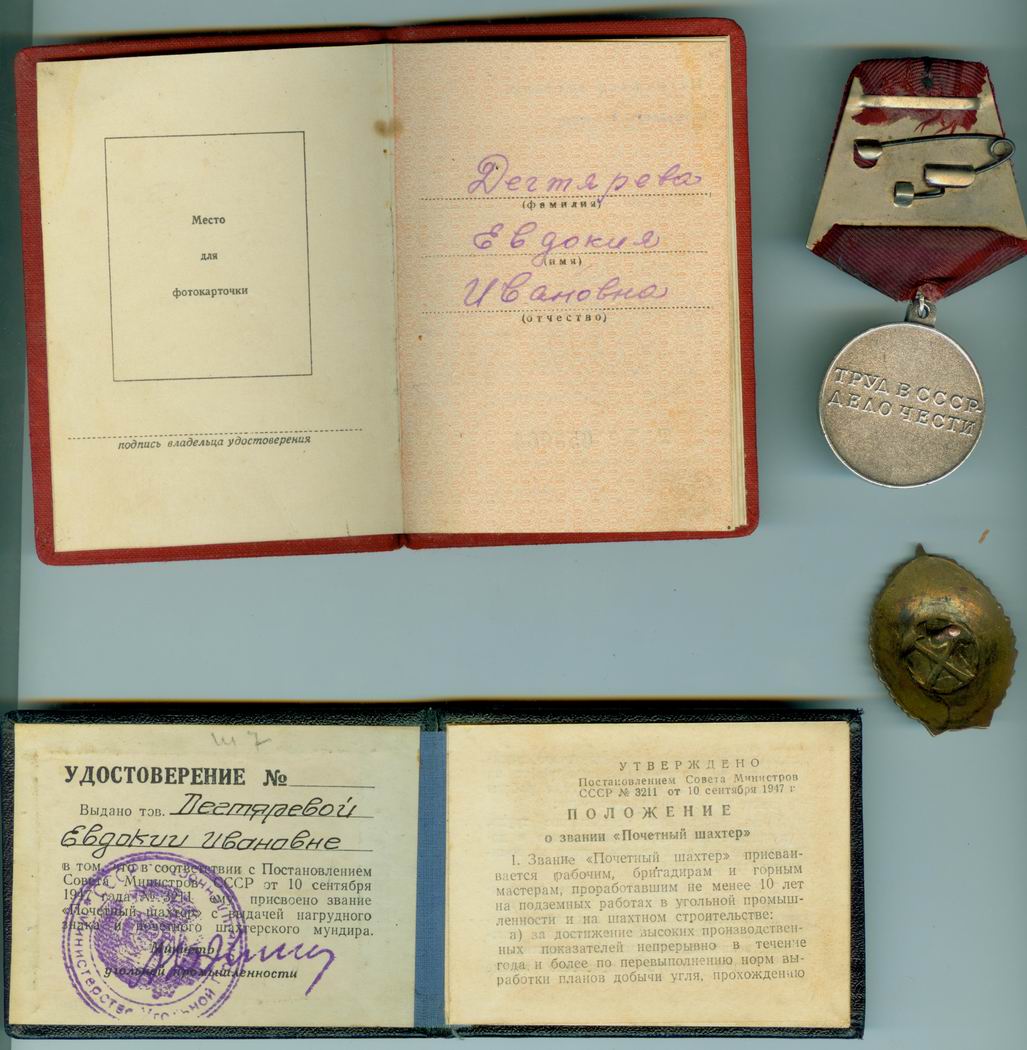 Место
для
фотокарточки
подпись владельца удостоверения
Дегтярева
(фамилия)
Евдокия
(имя)
Ивановна
(отчество)
ТРУД В СССР
ДЕЛО ЧЕСТИ
ш 7
УДОСТОВЕРЕНИЕ №
Выдано тов. Дегтяревой
Евдокии Ивановне
в том, что в соответствии с Постановлением
Совета Министров СССР от 10 сентября
1947 года № 3211 ему присвоено звание
«Почетный шахтер» с выдачей нагрудного
знака и почетного шахтерского мундира.
Министр
угольной промышленности
УТВЕРЖДЕНО
Постановлением Совета Министров
СССР № 3211 от 10 сентября 1947 г
ПОЛОЖЕНИЕ
о звании «Почетный шахтер»
1. Звание «Почетный шахтер» присваи-
вается рабочим, бригадирам и горным
мастерам, проработавшим не менее 10 лет
на подземных работах в угольной промыш-
ленности и на шахтном строительстве:
а) за достижение высоких производствен-
ных показателей непрерывно в течение
года и более по перевыполнению норм вы-
работки планов добычи угля, прохождению